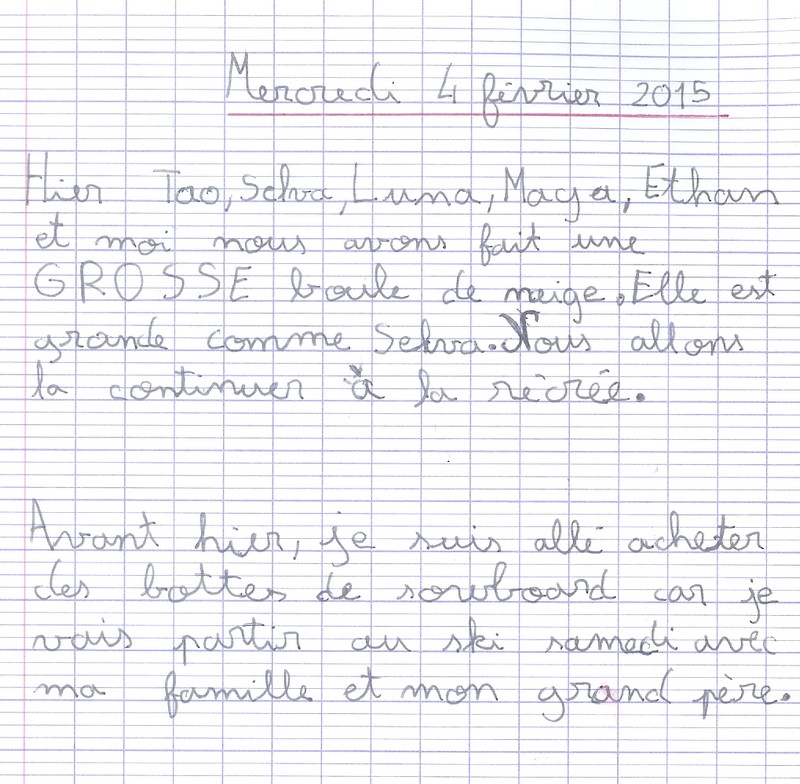 Mercredi 4 février 2015
Hier Tao, Selva, Luma, Maya, Ethan
et moi nous avons fait une
GROSSE boule de neige. Elle est
grande comme Selva. Nous allons
la continuer à la récrée.
Avant hier, je suis allé acheter
des bottes de sowboard car je
vais partir au ski samedi avec
ma famille et mon grand père.